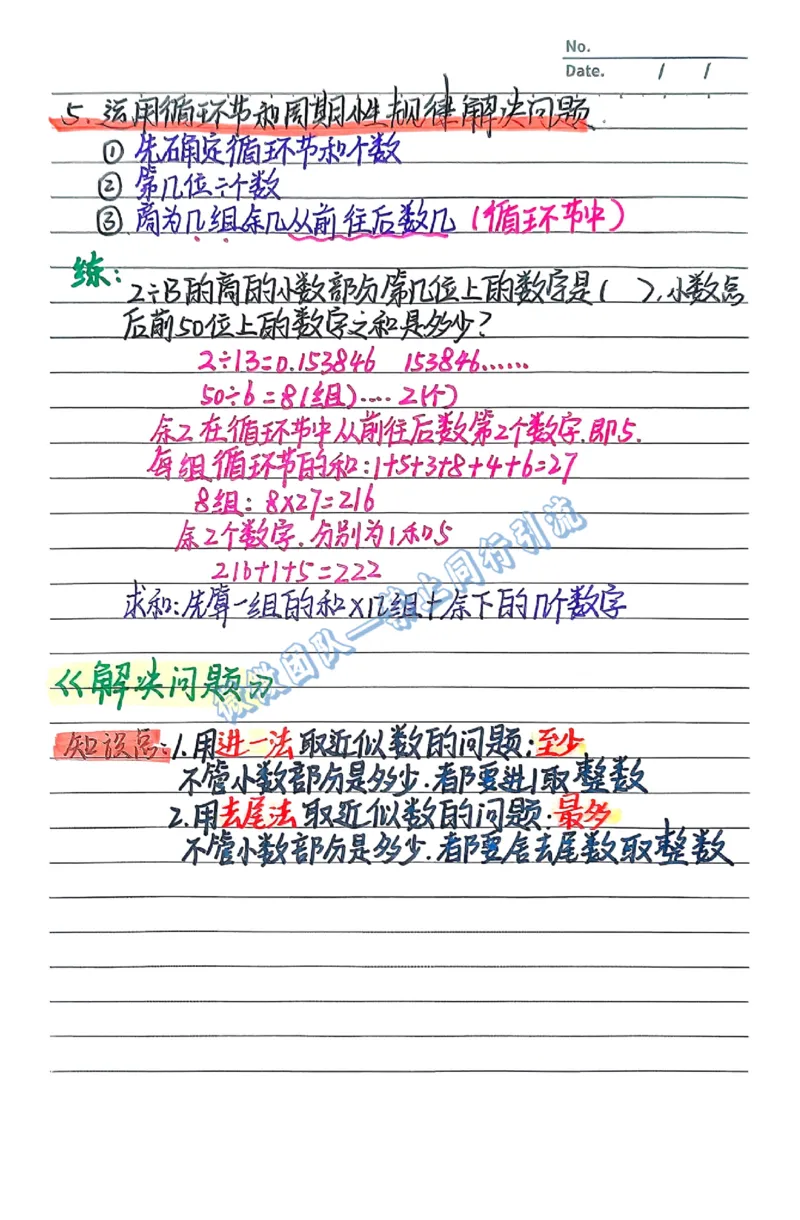 No.
Date. / /
5.运用循环节和周期性规律解决问题
① 先确定循环节和个数
② 第几位÷个数
③ 商为几组余几从前往后数几(循环节中)
练:
2÷13的商的小数部分第几位上的数字是( ),小数点
后前50位上的数字之和是多少?
2÷13=0.153846 153846......
50÷6=8(组)....2(个)
余2在循环节中从前往后数第2个数字.即5.
每组循环节的和:1+5+3+8+4+6=27
8组:8×27=216
余2个数字.分别为1和5
216+1+5=222
求和:先算一组的和×几组+余下的几个数字
微微团队一禁止同行引流
《解决问题》
知识点:1.用进一法取近似数的问题:至少
不管小数部分是多少.都要进1取整数
2.用去尾法取近似数的问题.最多
不管小数部分是多少.都要舍去尾数取整数